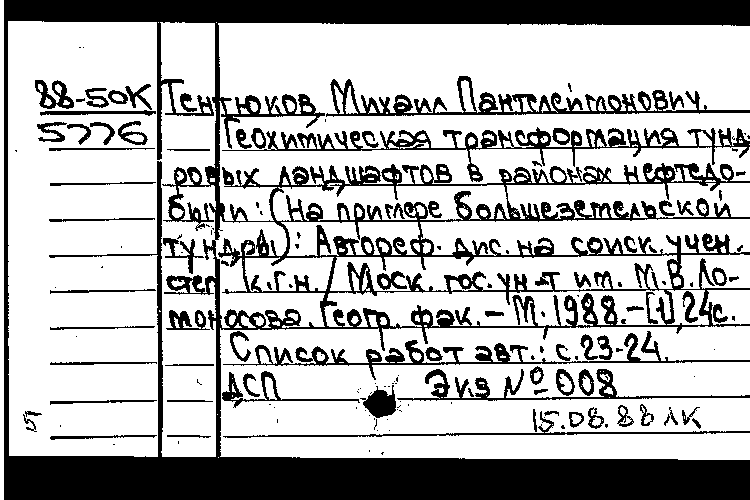 88-50К Тентюков Михаил Пантелеймонович.
5776 Геохимическая трансформация тунд-
ровых ландшафтов в районах нефтедо-
бычи: (На примере большеземельской
тундры): Автореф. дис. на соиск. учен.
степ. к.г.н. / Моск. гос. ун-т им. М.В.Ло-
моносова. Геогр. фак. – М., 1988. – [1], 24с.
Список работ авт.: с.23-24.
ДСП Экз № 008
15.08.88 ЛК